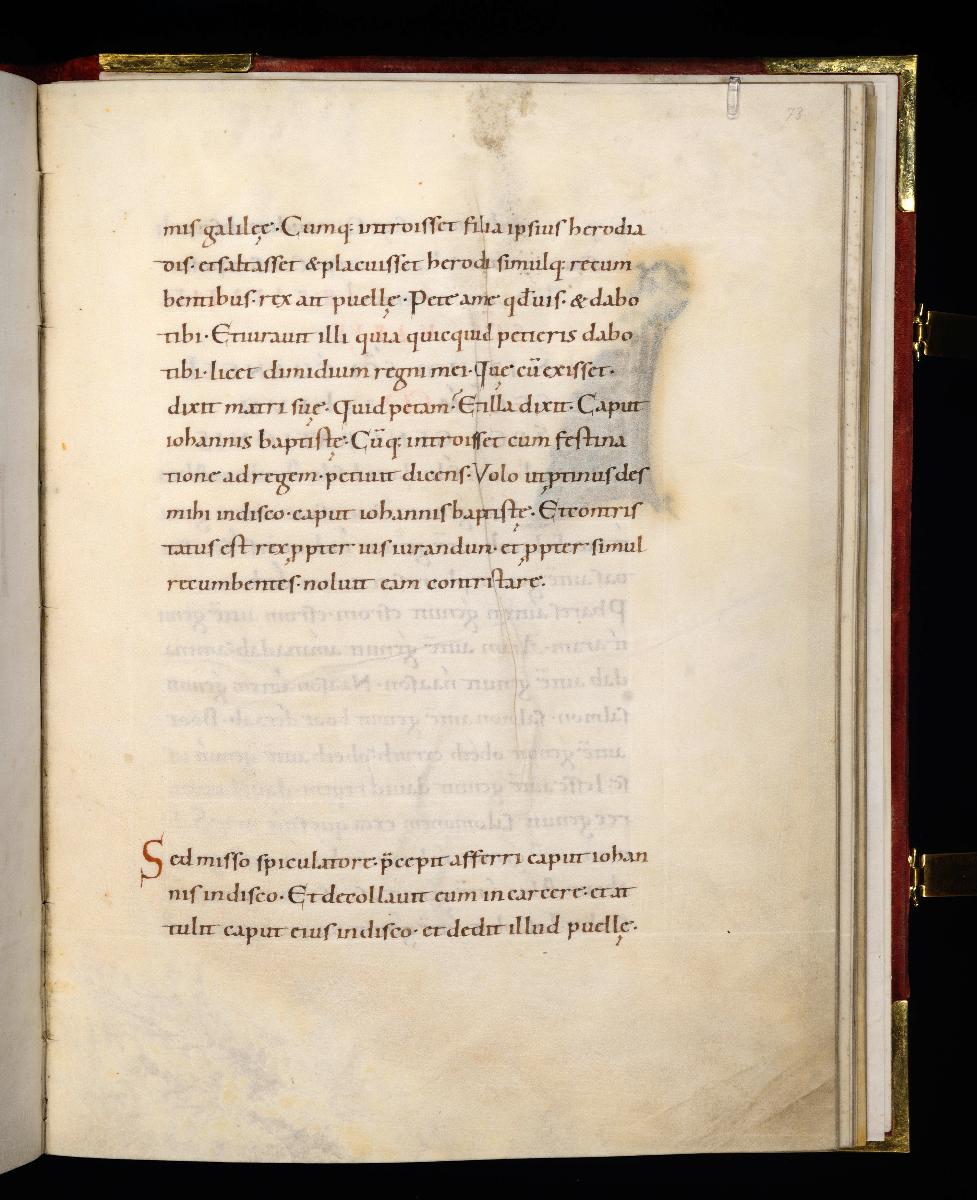 73
mis galileę· Cumq; introisset filia ipsius herodia
dis· et saltasset & placuisset herodi simulq; recum
bentibus· rex ait puellę· Pete a me qd̄ uis· & dabo
tibi· Et iurauit illi quia quicquid petieris dabo
tibi· licet dimidium regni mei· Quę cū exisset·
dixit matri suę· Quid petam· Et illa dixit· Caput
iohannis baptistę· Cūq; introisset cum festina
tione ad regem· petiuit dicens· Volo ut ꝓtinus des
mihi in disco· caput iohannis baptistę· Et contris
tatus est rex ꝓpter iusiurandum· et ꝓpter simul
recumbentes· noluit eam contristare·
Sed misso spiculatore· p̄cepit afferri caput iohan
nis in disco· Et decollauit eum in carcere· et at
tulit caput eius in disco· et dedit illud puellę·